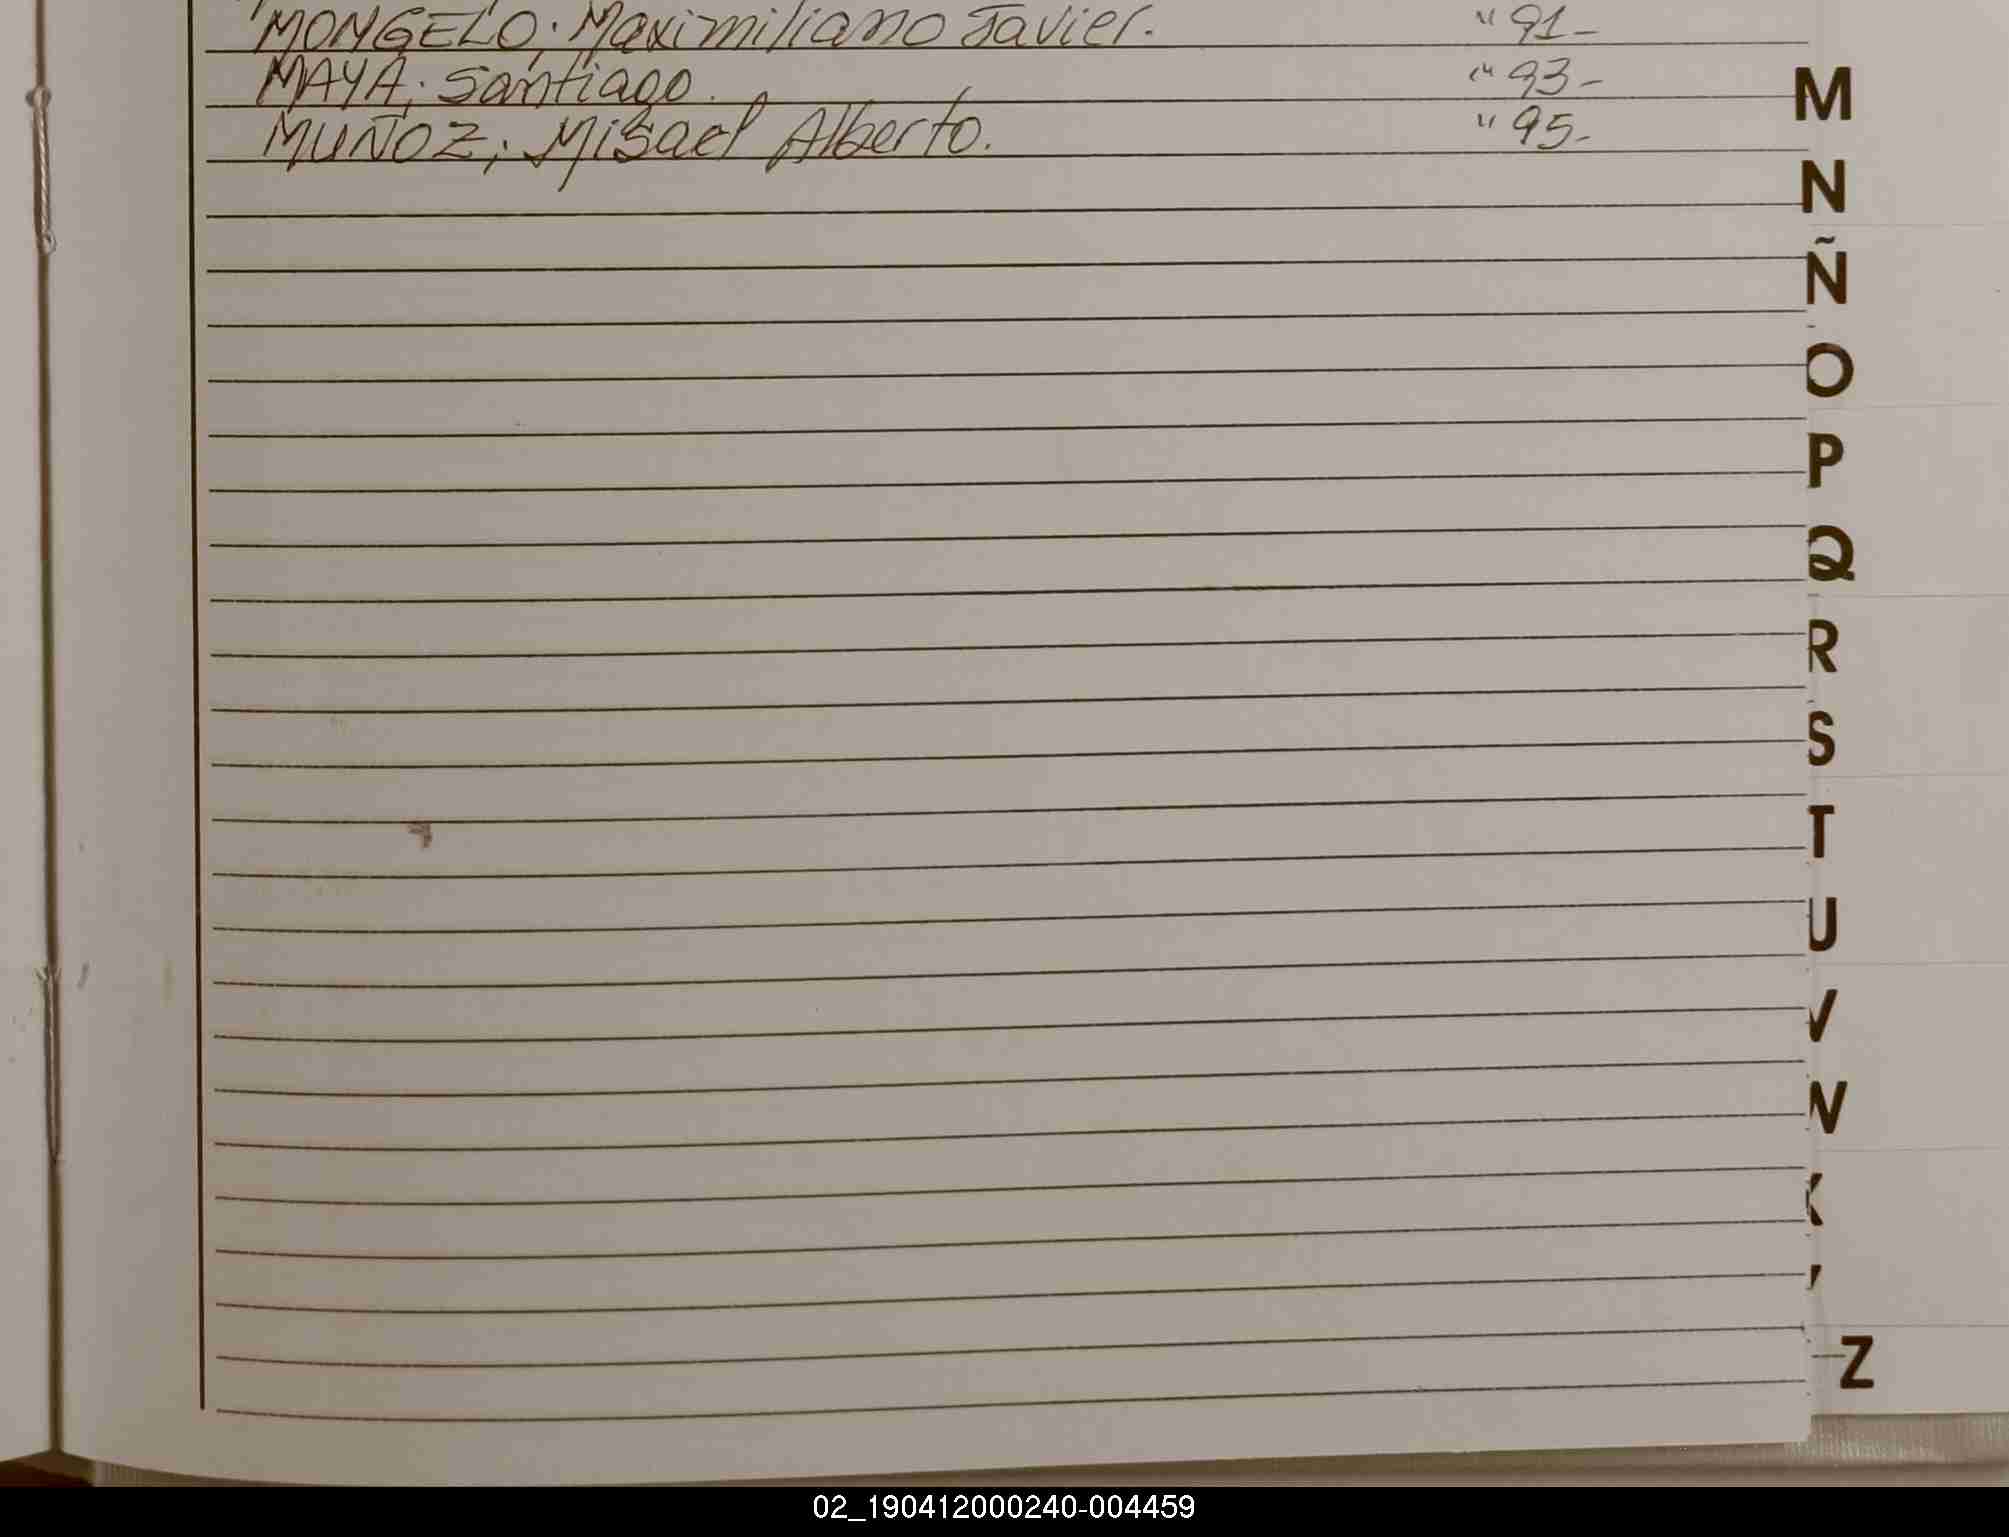 MONGELO; Maximiliano Javier. " 91-
MAYA; Santiago. " 93-
MUÑOZ; Misael Alberto. " 95-
M
N
Ñ
O
P
Q
R
S
T
U
V
W
X
Z
02_190412000240-004459